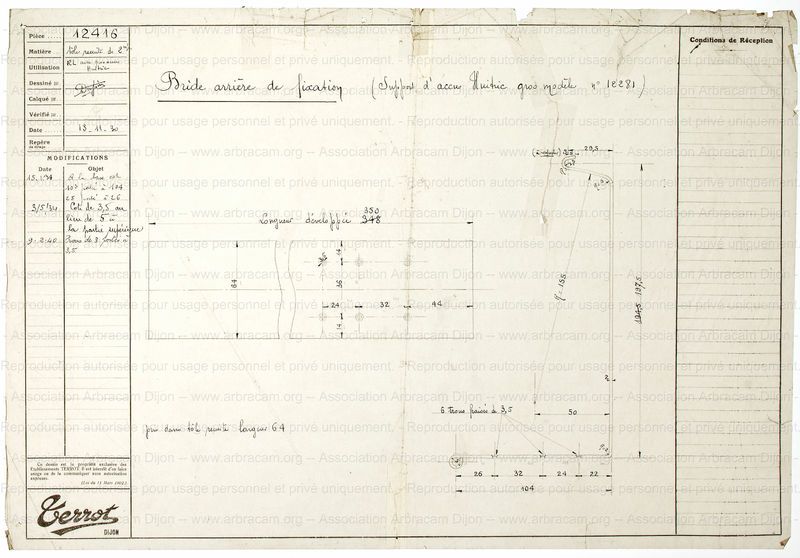 Pièce ..... 12416
Matière tôle recuite de 2 m/m
Utilisation RL
Dessiné
Calqué
Vérifié
Date 13.11.30
Repère
MODIFICATIONS
Date Objet
15.1.34 à la base cote
104
25 à 26
3/5/34 Cote de 3,5 au
lieu de 5 à
la partie supérieure
9-2-40 Trous de 3 portés à
3,5
Ce dessin est la propriété exclusive des
Etablissements TERROT. Il est interdit d'en faire
usage ou de le communiquer sans autorisation
expresse.
(Loi du 11 Mars 1902.)
Terrot
DIJON
Bride arrière de fixation (Support d'accus gros modèle n° 12281)
Conditions de Réception
Longueur développée 350
348
64
14
36
14
24 32 44
pris dans tôle recuite largeur 64
29,5
r = 155
194,5 197,5
2
50
6 trous percés à 3,5
26 32 24 22
104
Reproduction autorisée pour usage personnel et privé uniquement. Association Arbracam Dijon – www.arbracam.org